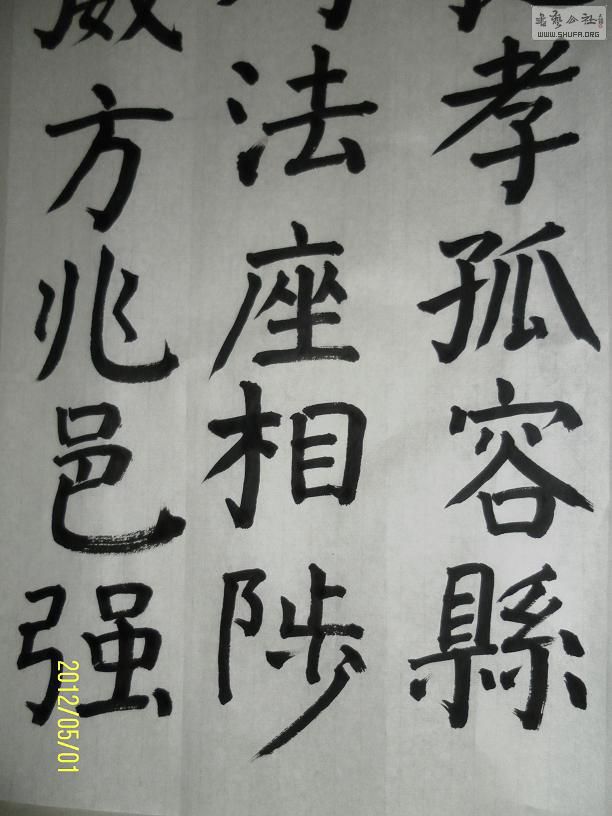 孝孤容縣
法座相陟
威方兆邑强
書藝公社
WWW.SHUFA.ORG
2012/05/01